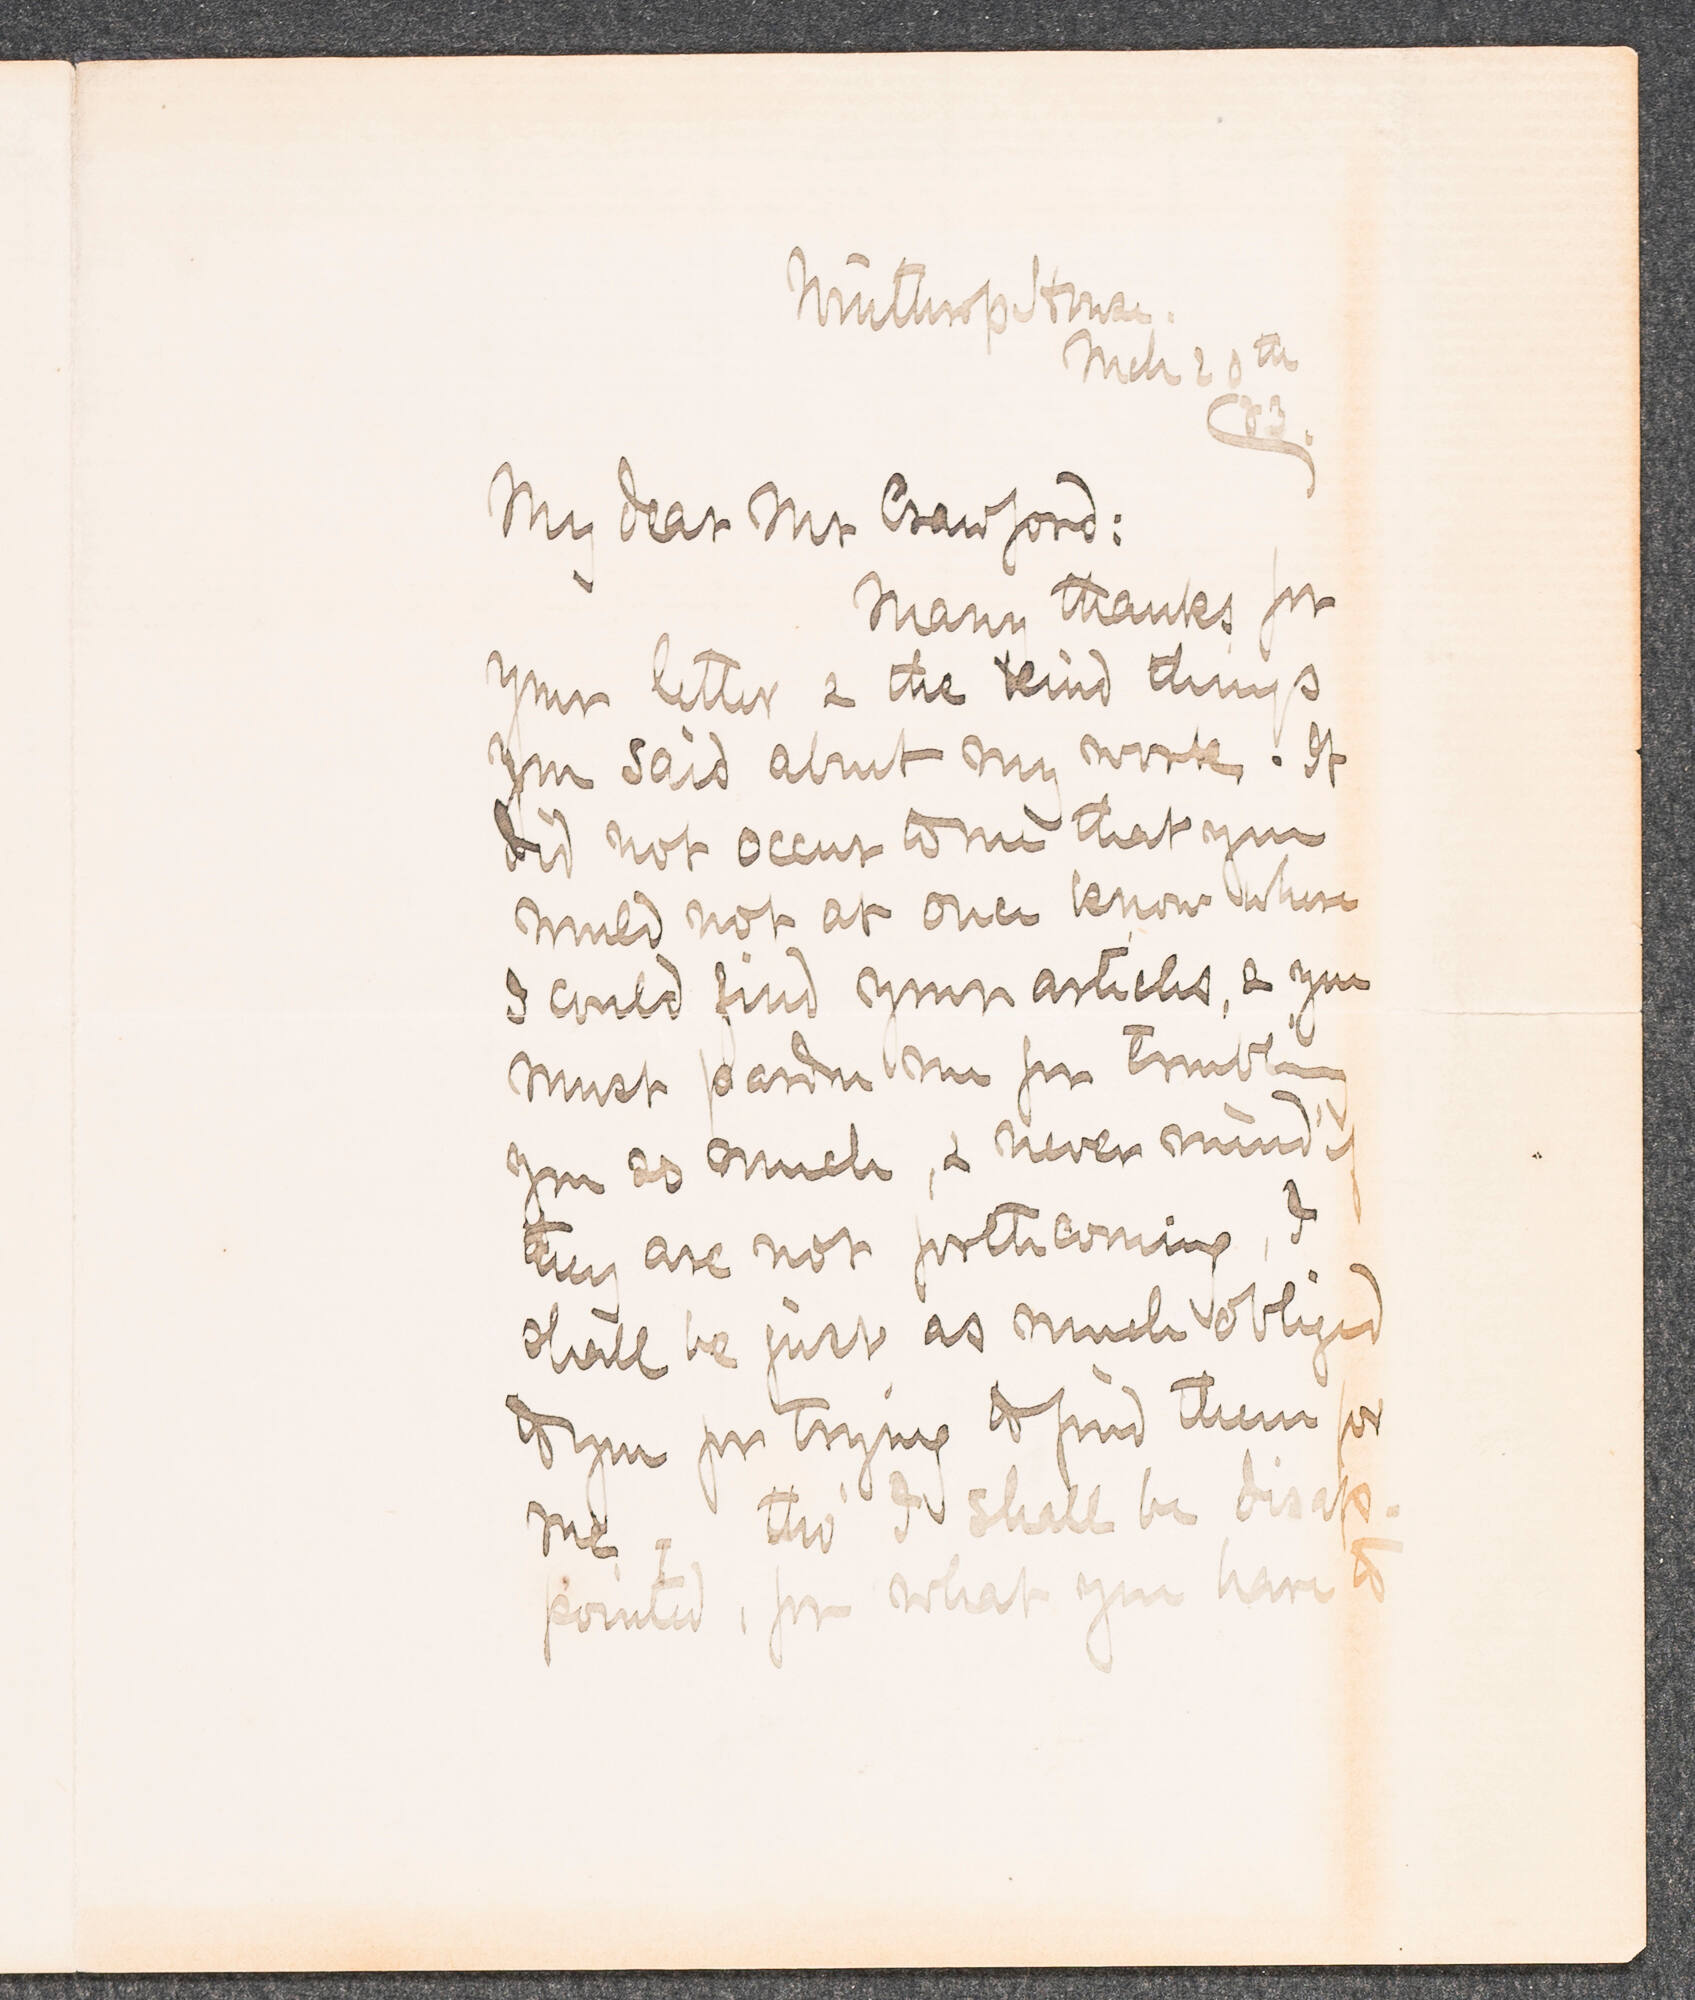 Winthrop House.
Mch 20th
83.
My dear Mr Crawford:
Many thanks for
your letter & the kind things
you said about my work. It
did not occur to me that you
would not at once know where
I could find your articles, & you
must pardon me for troubling
you so much, & never mind if
they are not forthcoming, I
shall be just as much obliged
to you for trying to find them for
me, - tho' I shall be disap-
pointed, for what you have to